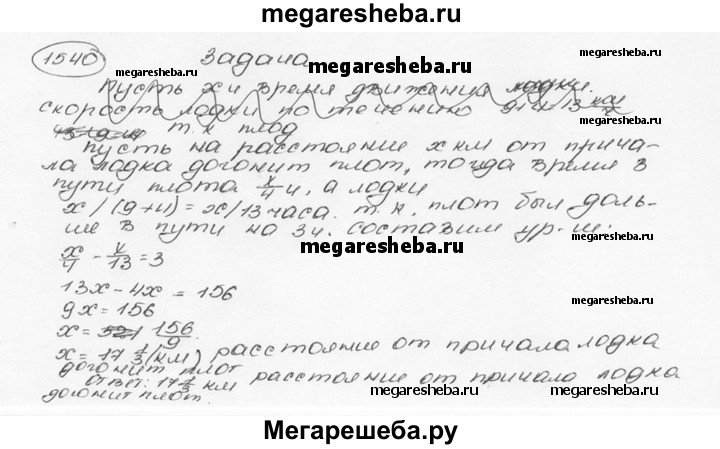 megaresheba.ru
1540 Задача
Пусть х ч время движения лодки.
скорость лодки по течению 9+4=13 км/ч
т.к плод
пусть на расстояние х км от прича-
ла лодка догонит плот, тогда время в
пути плота х/4 ч, а лодки
х/(9+4)=х/13 часа. т.к. плот был даль-
ше в пути на 3ч. составим ур-ие.
х/4 - х/13 = 3
13х-4х = 156
9х = 156
х = 156/9
х = 17 1/3 (км) расстояние от причала лодка
догонит плот
Ответ: 17 1/3 км расстояние от причало лодка
догонит плот.
megaresheba.ru
megaresheba.ru
megaresheba.ru
megaresheba.ru
megaresheba.ru
megaresheba.ru
megaresheba.ru
Мегарешеба.ру